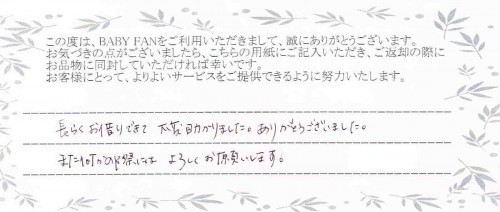 この度は、BABY FANをご利用いただきまして、誠にありがとうございます。
お気づきの点がございましたら、こちらの用紙にご記入いただき、ご返却の際に
お品物に同封していただければ幸いです。
お客様にとって、よりよいサービスをご提供できるように努力いたします。
長らくお借りできて 大変助かりました。ありがとうございました。
また何かの際には よろしくお願いします。